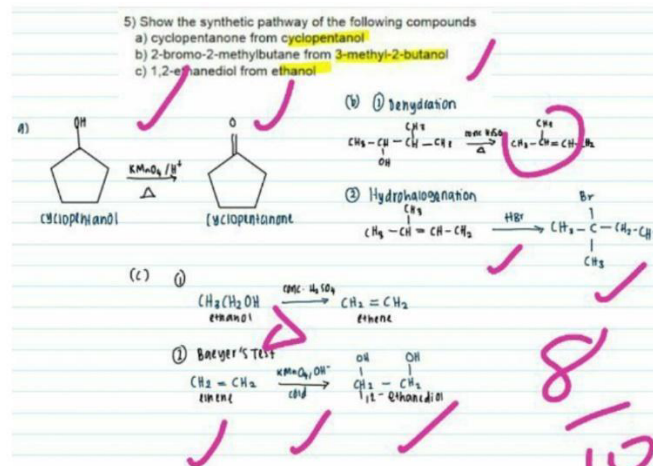 5) Show the synthetic pathway of the following compounds
a) cyclopentanone from cyclopentanol
b) 2-bromo-2-methylbutane from 3-methyl-2-butanol
c) 1,2-ethanediol from ethanol
a)
OH
KMnO4 /H+
Δ
cyclopentanol
O
cyclopentanone
(b) ① Dehydration
CH3
CH3 - CH - CH - CH3
OH
conc H2SO4
Δ
CH3
CH3 - CH = CH - CH2
② Hydrohalogenation
CH3
CH3 - CH = CH - CH2
HBr
Br
CH3 - C - CH2 - CH
CH3
(c) ①
CH3CH2OH
ethanol
conc. H2SO4
CH2 = CH2
ethene
② Baeyer's Test
CH2 = CH2
ethene
KMnO4, OH-
cold
OH OH
CH2 - CH2
1,2 - ethanediol
8